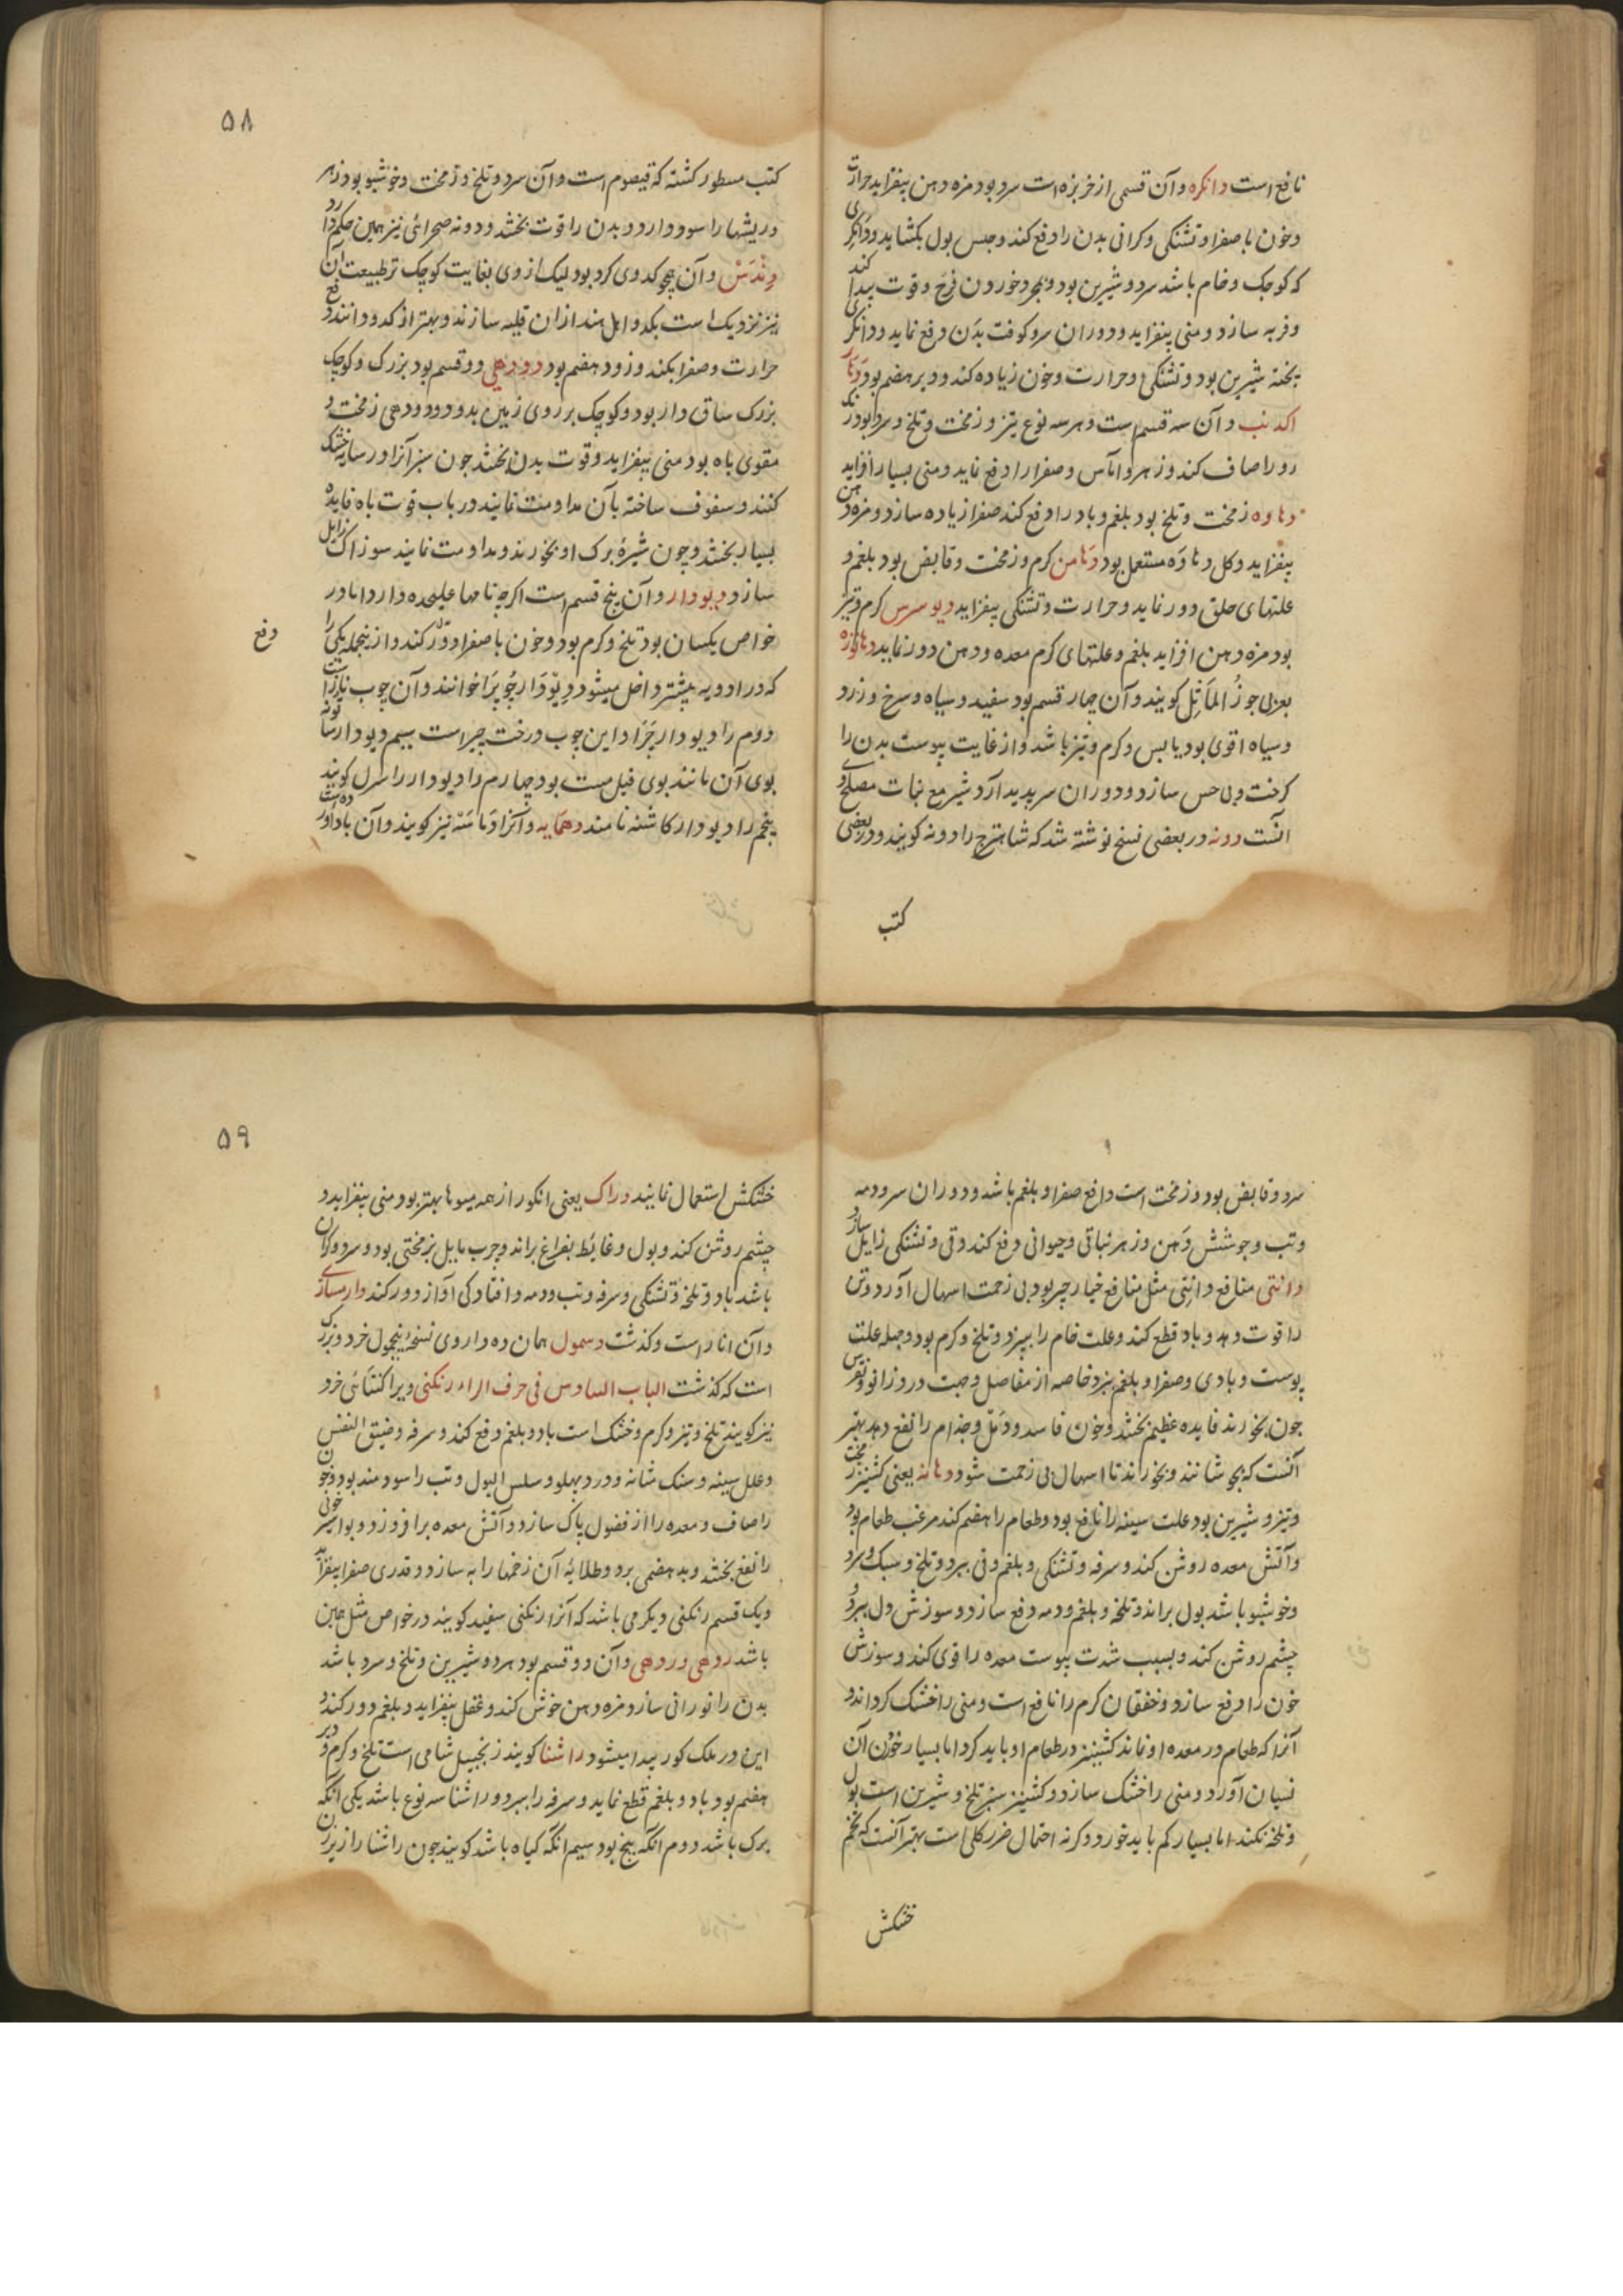 نافع است دانکره و آن قسمی از خربزه است سرد بود مزه دهن بیفزاید حرارت
و خون با صفرا و تشنگی و کرانی بدن را دفع کند و حبس بول بکشاید و دانکری
که کوچک و خام باشد سرد و شیرین بود و بمجرد خوردن فرح و قوت پیدا کند
و فربه سازد و منی بیفزاید و دوران سر و کوفت بدن دفع نماید و دانکری
پخته شیرین بود و تشنکی و حرارت و خون زیاده کند و دیر هضم بود
و آن سه قسم است و هر سه نوع تیز و زمخت و تلخ و سرد بود رنک
رو را صاف کند و زهر و آماس و صفرا را دفع نماید و منی بسیار افزاید
دهاوه زمخت و تلخ بود بلغم و باد را دفع کند صفرا زیاده سازد و مزه دهن
بیفزاید و کل دهاوه مستعمل بود دهامن کرم و زمخت و قابض بود بلغم و
علتهای حلق دور نماید و حرارت و تشنکی بیفزاید دیوسرس کرم و تیز
بود مزه دهن افزاید بلغم و علتهای کرم معده و دهن دور نماید دهاتوره
بعربی جوز الماثل کویند و آن چهار قسم بود سفید و سیاه و سرخ و زرد
و سیاه اقوی بود یابس و کرم و تیز باشد و از غایت یبوست بدن را
کرخت و بی حس سازد و دوران سر پدید آرد شیر مع نبات مصلح
انست دونه در بعضی نسخ نوشته شد که شاهترج را دونه کویند و در بعضی
کتب
۵۸
کتب مسطور کشته که قیصوم است و آن سرد و تلخ و زمخت و خوشبو بود زهر
و ریشها را سود دارد و بدن را قوت بخشد و دونه صحرائی نیز همین حکم دارد
و آن همچو کدوی کرد بود لیک از وی بغایت کوچک تر طبیعت آن
نیز نزدیک است بکدو اهل هند ازان قلیه سازند و بهتر از کدو دانند و دفع
حرارت و صفرا بکند و زود هضم بود دودهی دو قسم بود بزرک و کوچک
بزرک ساق دار بود و کوچک بر روی زمین بدود و دودهی زمخت و
مقوی باه بود منی بیفزاید و قوت بدن بخشد چون سبز آنرا در سایه خشک
کنند و سفوف ساخته بآن مداومت نمایند در باب قوت باه فایده
بسیار بخشد و چون شیرهٔ برک او بخورند و مداومت نمایند سوزاک زایل
سازد دیودار و آن پنج قسم است اکرچه نامها علیحده دارد اما در
خواص یکسان بود تلخ و کرم بود و خون با صفرا دور کند و از ینجمله یکی را
دفع
که در ادویه بیشتر داخل میشود و آن چوب
دوم را دیودار و این چوب درخت چیر است سیم دیودار
بوی آن مانند بوی فیل مست بود چهارم را دیودار سرل کویند
پنجم را دیودار کاشته نامند دهمایه و آنرا نیز کویند و آن
سرد و قابض بود و زمخت است دافع صفرا و بلغم باشد و دوران سر و دمه
و تب و جوشش دهن و زهر نباتی و حیوانی دفع کند و قی و تشنکی زایل سازد
دانتی منافع دانتی مثل منافع خیارچبر بود بی زحمت اسهال آورد و تن
را قوت دهد و باد قطع کند و علت خام را بپزد و تلخ و کرم بود و جمله علت
پوست و بادی و صفرا و بلغم ببرد خاصه از مفاصل و جهت درد زانو و نقرس
چون بخورند فایده عظیم بخشد و خون فاسد و دمل و جذام را نفع دهد بهتر
آنست که بجوشانند و بخورانند تا اسهال بی زحمت شود دهانه یعنی کشنیز زمخت
و تیز و شیرین بود علت سینه را نافع بود و طعام را هضم کند مرغب طعام بود
و آتش معده روشن کند و سرفه و تشنکی و بلغم و قی ببرد و تلخ و سبک و سرد
و خوشبو باشد بول براند و تلخه و بلغم و دمه دفع سازد و سوزش دل ببرد و
چشم روشن کند و بسبب شدت یبوست معده را قوی کند و سوزش
خون را دفع سازد و خفقان کرم را نافع است و منی را خشک کرداند و
آنرا که طعام در معده او نماند کشنیز در طعام او باید کرد اما بسیار خوردن آن
نسیان آورد و منی را خشک سازد و کشنیز سبز تلخ و شیرین است بول
و تلخه نکند اما بسیار کم باید خورد و کرنه احتمال ضرر کلی است بهتر آنست که تخم
خشکش
۵۹
خشکش استعمال نمایند دراک یعنی انکور از همه میوها بهتر بود منی بیفزاید و
چشم روشن کند و بول و غایط بفراغ براند و چرب مایل بزمختی بود و سرد و کران
باشد باد و تلخه و تشنکی و سرفه و تب و دمه و افتادکی آواز دور کند
و آن انار است و کذشت دسمول همان ده داروی نسخه پنجمول خرد و بزرک
است که کذشت الباب السادس فی حرف الراء رنکنی ویرا کنتائی خرد
نیز کویند تلخ و تیز و کرم و خشک است باد و بلغم دفع کند و سرفه و ضیق النفس
و علل سینه و سنک مثانه و درد پهلو و سلس البول و تب را سودمند بود و خون
را صاف و معده را از فضول پاک سازد و آتش معده برافروزد و بواسیر خونی
را نفع بخشد و بدهضمی برد و طلایهٔ آن زخمها را به سازد و قدری صفرا بیفزاید
و یک قسم رنکنی دیکر می باشد که آنرا رنکنی سفید کویند در خواص مثل همین
باشد ردهی و ردهی و آن دو قسم بود هر دو شیرین و تلخ و سرد باشد
بدن را نورانی سازد مزه دهن خوش کند و عقل بیفزاید و بلغم دور کند و
این در ملک کور پیدا میشود راشنا کویند زنجبیل شامی است تلخ و کرم و دیر
هضم بود باد و بلغم قطع نماید و سرفه را ببرد و راشنا سه نوع باشد یکی آنکه
برک باشد دوم آنکه بیخ بود سیم آنکه کیاه باشد کویند چون راشنا را زیر زبان